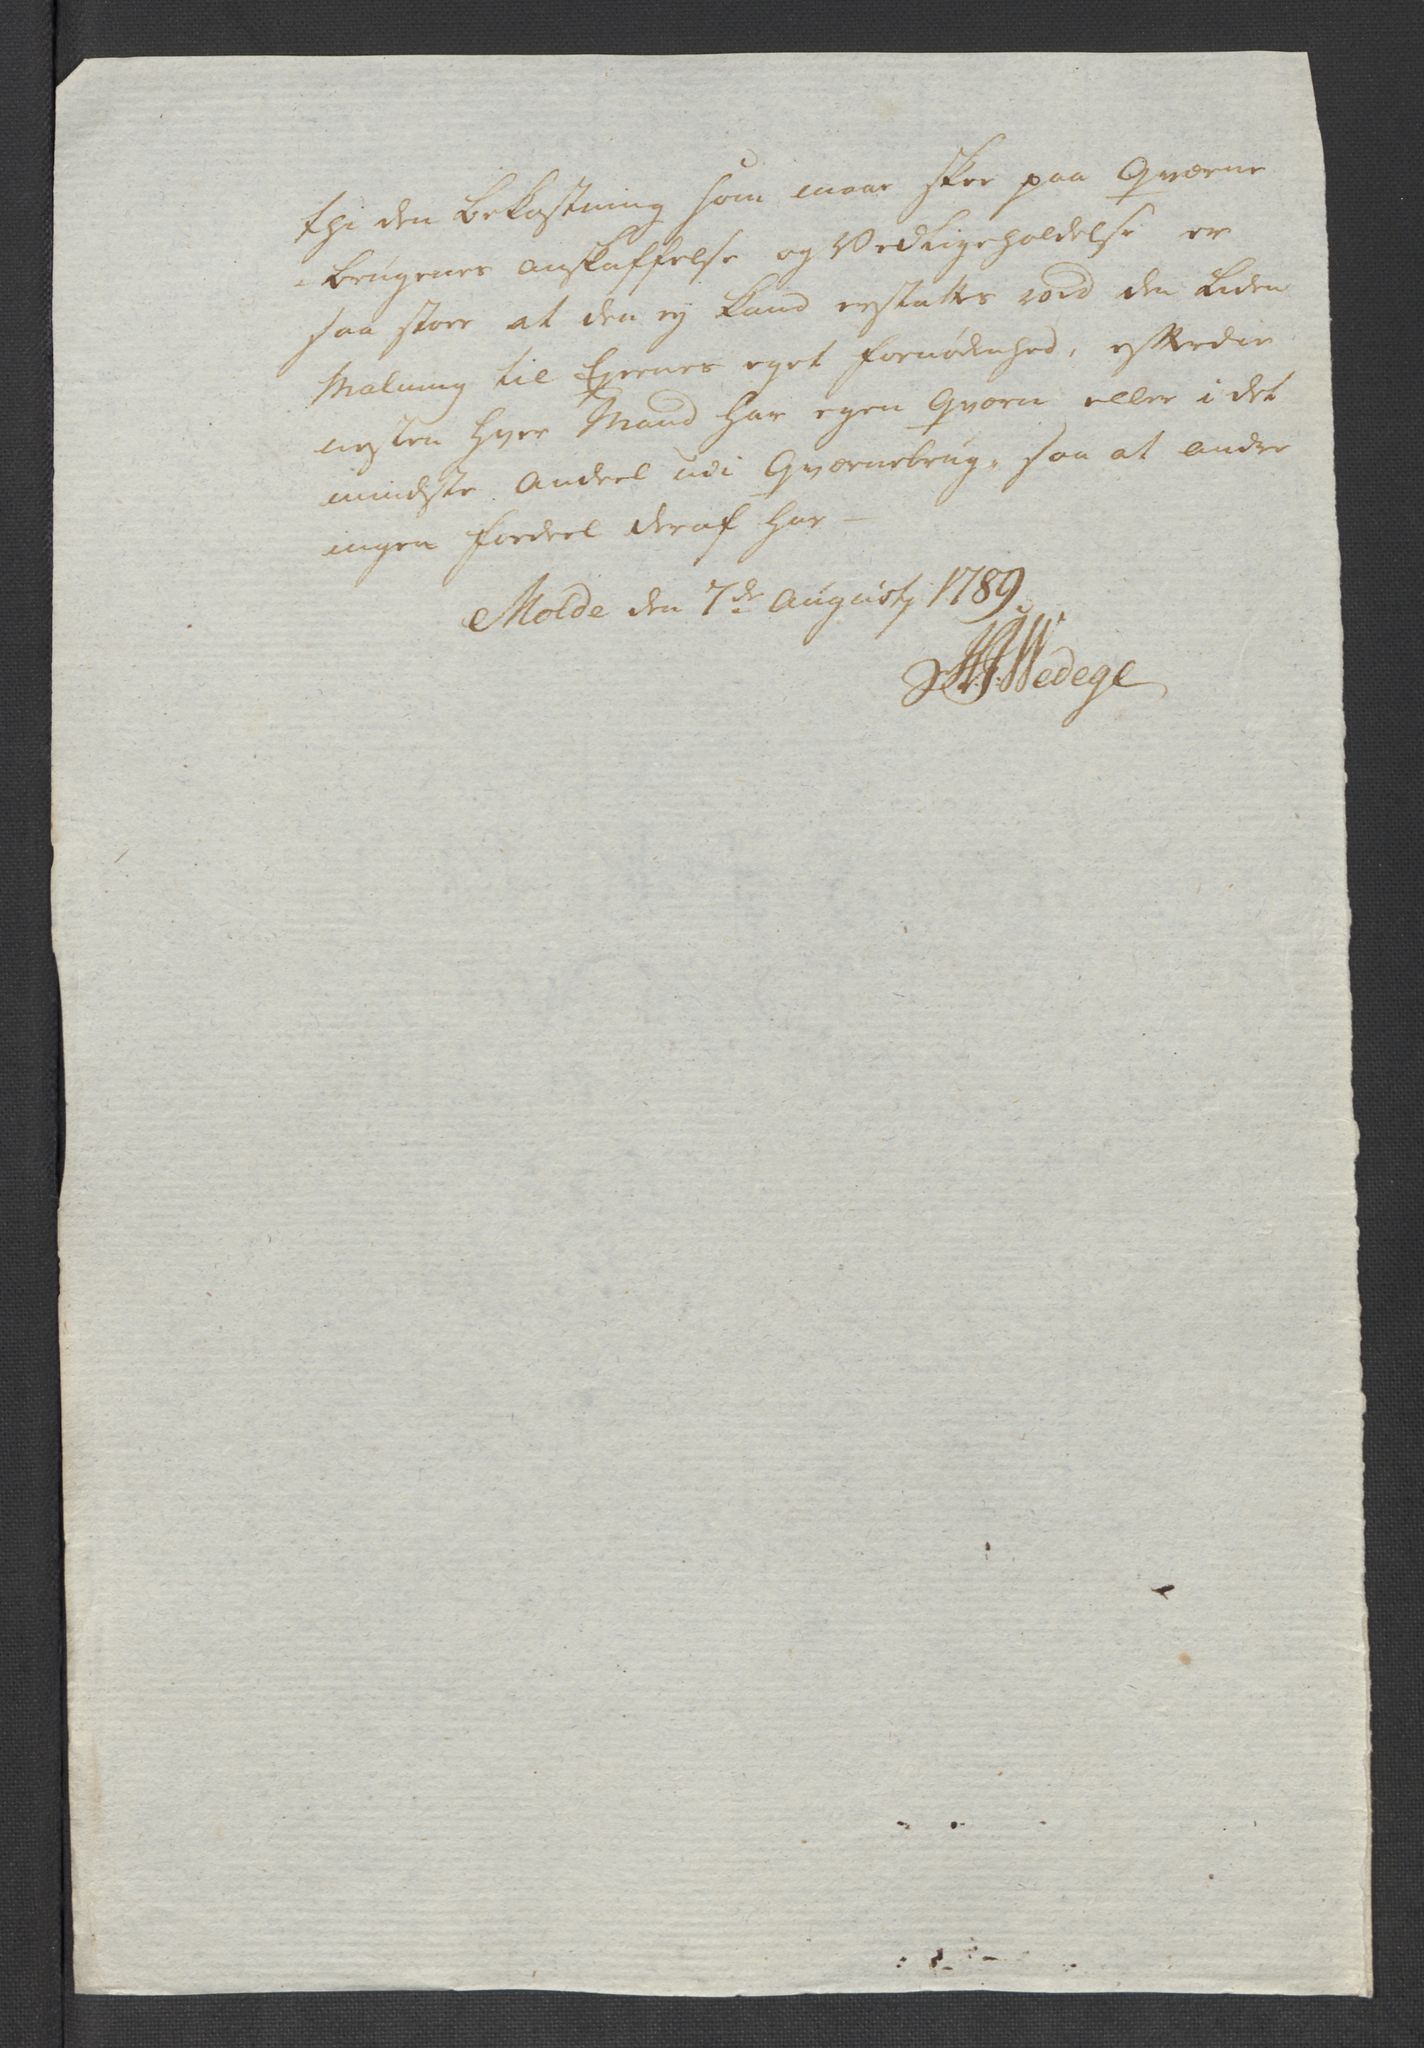 thi den bekostning som maae skee paa Qværne
-brugenes anskaffelse og Vedligeholdelse er
saa stor at den ej kand erstattes ved den liden
Malning til Ejernes eget fornødenhed, efterdie
nesten hver Mand har egen Qværn eller i det
mindste Andeel udi Qværnebrug, saa at andre
ingen fordeel deraf har —
Molde den 7de Augustj 1789
Wedege